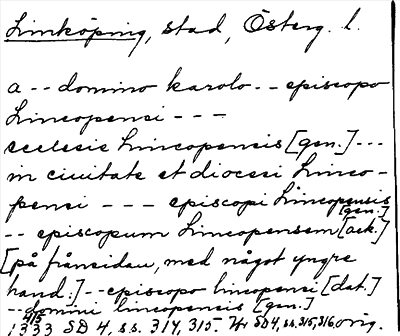 Linköping, stad, Österg. l.
a - - domino karolo - - episcopo
Lincopensi - - -
ecclesie Lincopensis [gen.] - - -
in ciuitate et diocesi Linco-
pensi - - - episcopi Lincopensis
[gen.]
- - episcopum Lincopensem [ack.]
[på frånsidan, med något yngre
hand:] - - episcopo lincopensi [dat.]
- - domini lincopensis [gen.]
1333 SD 4, s.s. 314, 315. Tr SD4, s.s. 315, 316. orig.